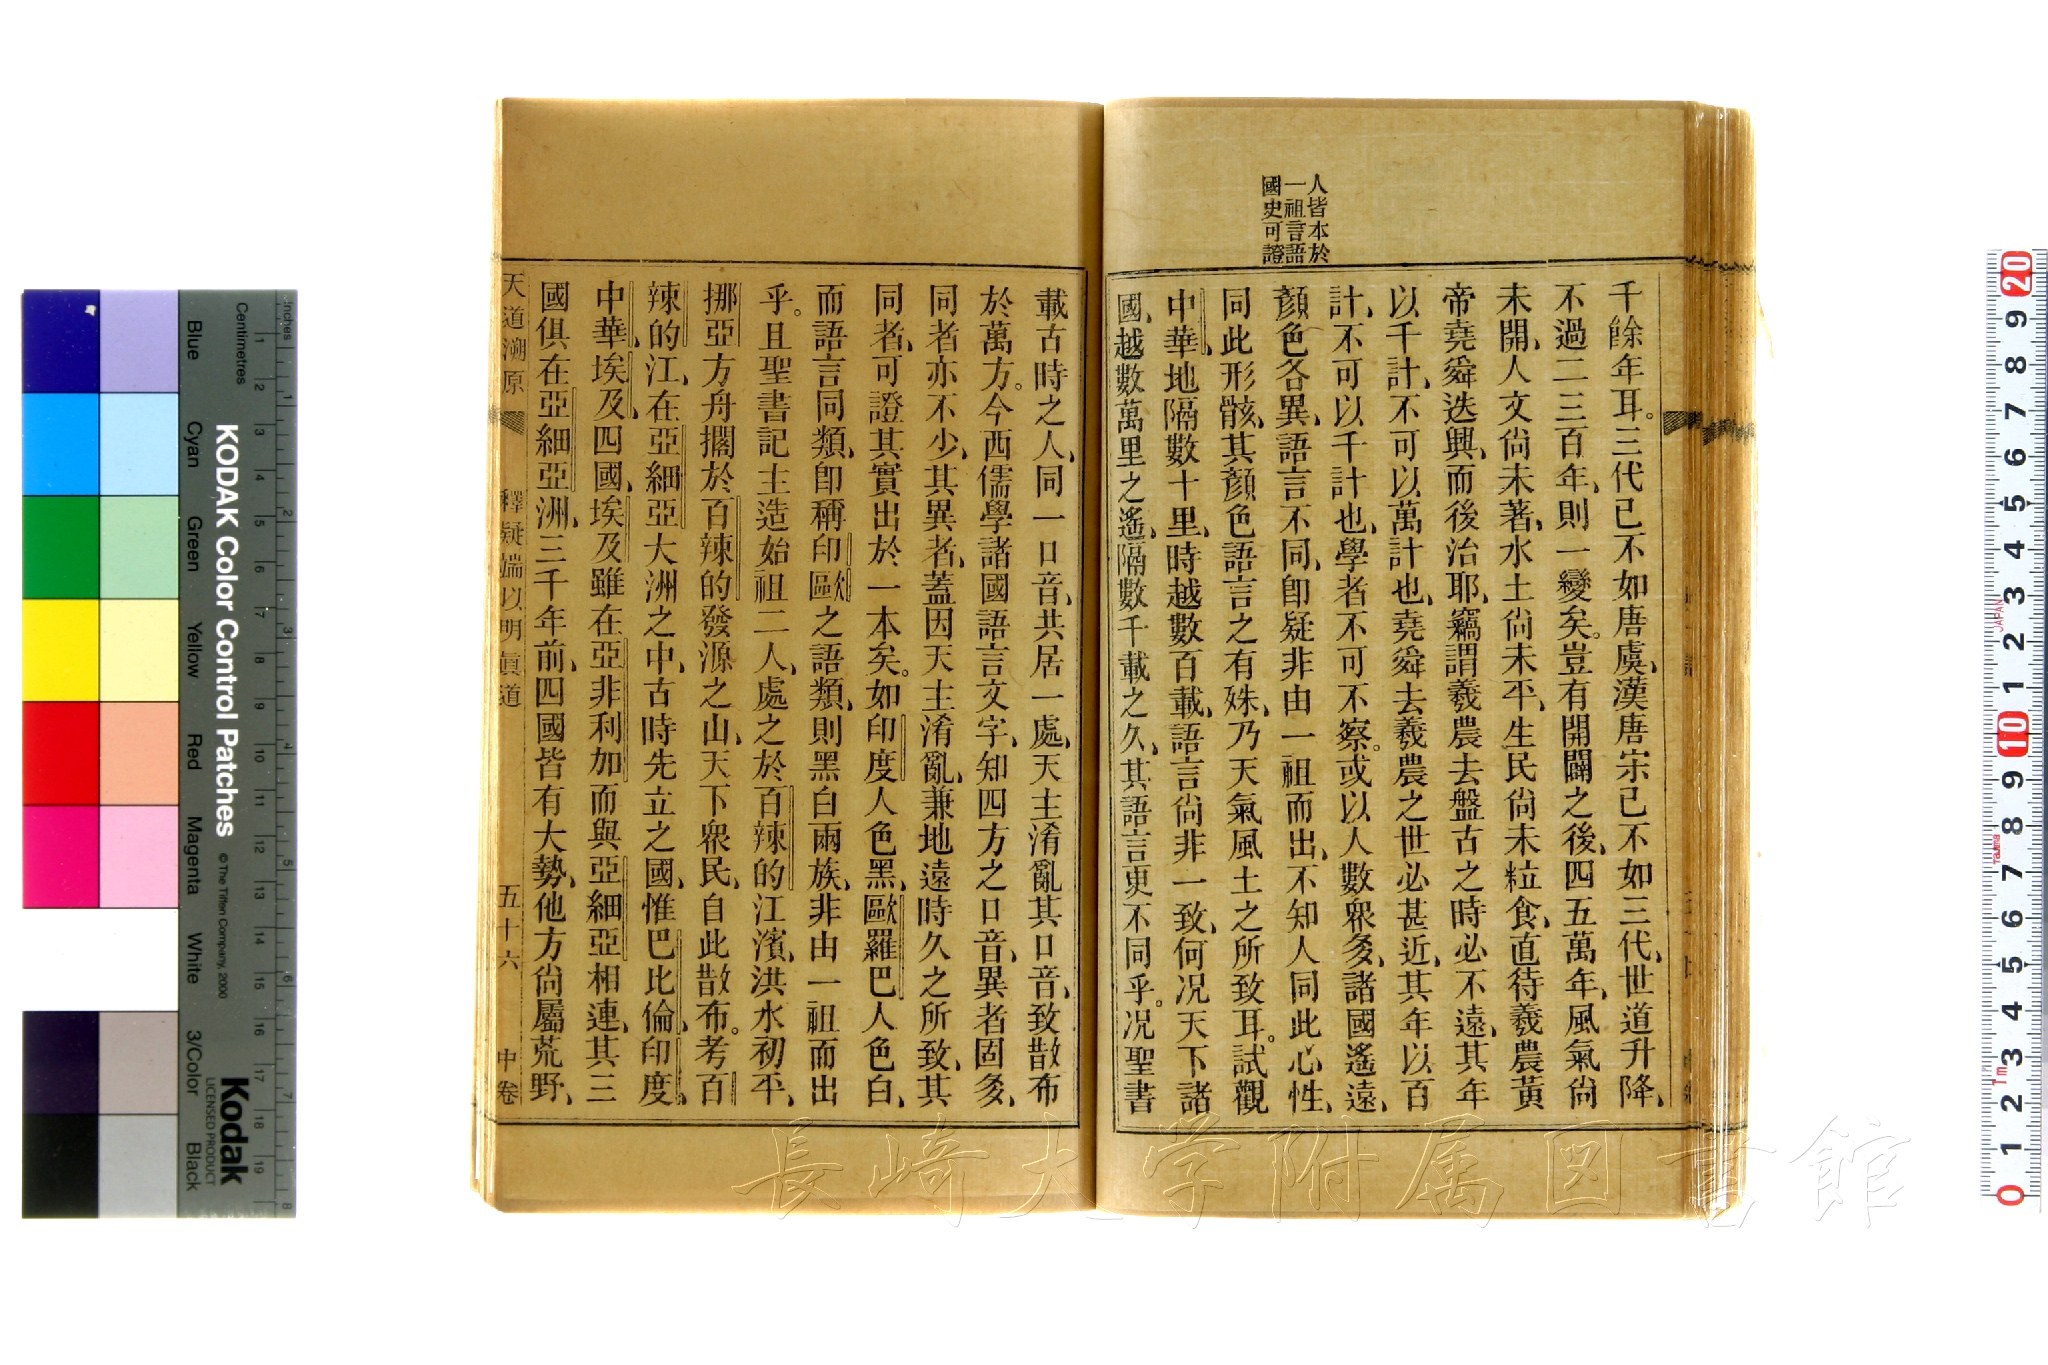 人皆本於
一祖言語
國史可證
千餘年耳。三代已不如唐虞、漢唐宋已不如三代、世道升降、
不過二三百年、則一變矣。豈有開闢之後、四五萬年、風氣尙
未開、人文尙未著、水土尙未平、生民尙未粒食、直待羲農黃
帝堯舜迭興、而後治耶、竊謂羲農去盤古之時必不遠、其年
以千計、不可以萬計也、堯舜去羲農之世必甚近、其年以百
計、不可以千計也、學者不可不察。或以人數衆多、諸國遙遠、
顏色各異、語言不同、卽疑非由一祖而出、不知人同此心性、
同此形骸、其顏色語言之有殊、乃天氣風土之所致耳。試觀
中華、地隔數十里、時越數百載、語言尙非一致、何况天下諸
國、越數萬里之遙、隔數千載之久、其語言更不同乎。况聖書
載古時之人、同一口音、共居一處、天主淆亂其口音、致散布
於萬方。今西儒學諸國語言文字、知四方之口音、異者固多、
同者亦不少、其異者、蓋因天主淆亂、兼地遠時久之所致、其
同者、可證其實出於一本矣。如印度人色黑、歐羅巴人色白、
而語言同類、卽稱印歐之語類、則黑白兩族、非由一祖而出
乎。且聖書記主造始祖二人、處之於百辣的江濱、洪水初平、
挪亞方舟擱於百辣的發源之山、天下衆民、自此散布。考百
辣的江、在亞細亞大洲之中、古時先立之國、惟巴比倫、印度、
中華、埃及、四國、埃及雖在亞非利加、而與亞細亞相連、其三
國俱在亞細亞洲、三千年前、四國皆有大勢、他方尙屬荒野、
天道溯原 釋疑端以明眞道 五十六 中卷
KODAK Color Control Patches
© The Tiffen Company, 2000
Kodak
LICENSED PRODUCT
Inches
Centimetres
Blue Cyan Green Yellow Red Magenta White 3/Color Black
1 2 3 4 5 6 7 8 9 10 11 12 13 14 15 16 17 18 19
1 2 3 4 5 6 7 8
20 9 8 7 6 5 4 3 2 1 10 9 8 7 6 5 4 3 2 1 0
JAPAN
Tajima
1m
長崎大学附属図書館